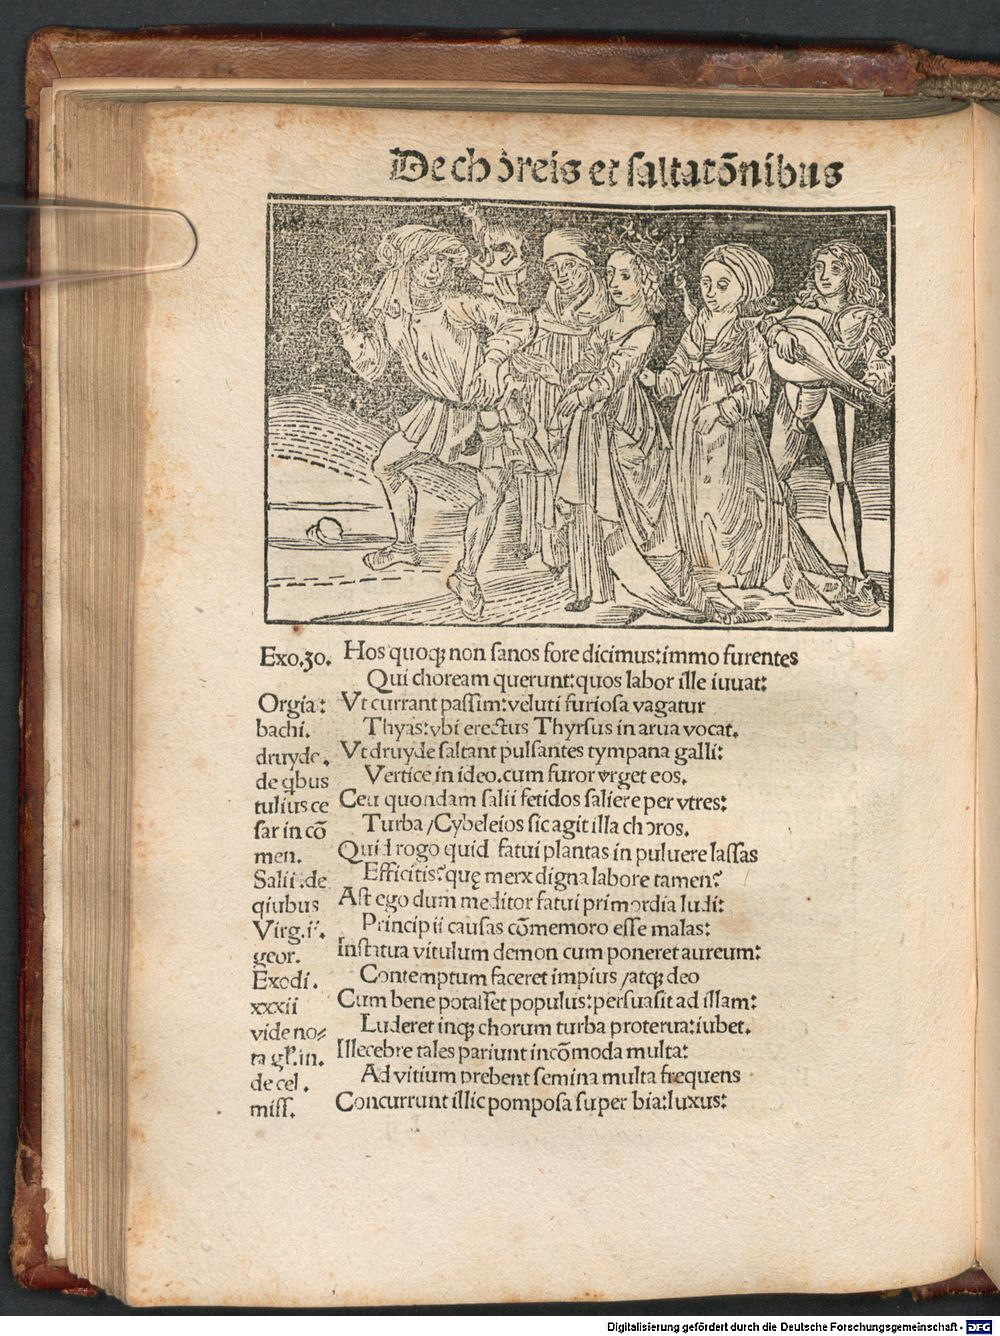 De choreis et saltatõnibus
Exo.30.
Orgia:
bachi.
druyde.
de qbus
tulius ce
sar in cõ
men.
Salii.de
qiubus
Virg.i.
geor.
Exodi.
xxxii
vide no⸗
ta in.
de cel.
miss.
Hos quoqꝫ non sanos fore dicimus:immo furentes
Qui choream querunt:quos labor ille iuuat:
Vt currant passim:veluti furiosa vagatur
Thyas:vbi erectus Thyrsus in arua vocat.
Vt druyde saltant pulsantes tympana galli:
Vertice in ideo.cum furor vrget eos.
Ceu quondam salii fetidos saliere per vtres:
Turba/Cybeleios sic agit illa choros.
Quid rogo quid fatui plantas in puluere lassas
Efficitis?quę merx digna labore tamen?
Ast ego dum meditor fatui primordia ludi:
Principii causas cõmemoro esse malas:
In statua vitulum demon cum poneret aureum:
Contemptum faceret impius/atqꝫ deo
Cum bene potasset populus:persuasit ad illam:
Luderet inqꝫ chorum turba proterua:iubet.
Illecebre tales pariunt incõmoda multa:
Ad vitium prebent semina multa frequens
Concurrunt illic pomposa superbia:luxus:
Digitalisierung gefördert durch die Deutsche Forschungsgemeinschaft - DFG